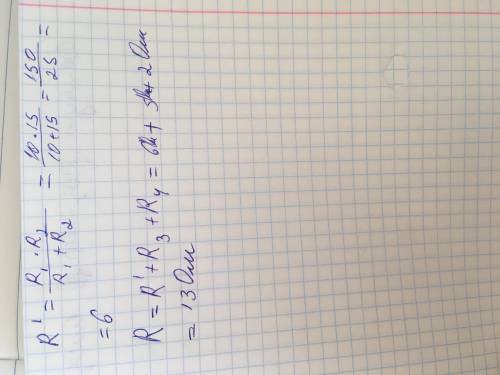 R' = R₁ · R₂ / R₁ + R₂ = 10 · 15 / 10 + 15 = 150 / 25 =
= 6
R = R' + R₃ + R₄ = 6Ом + 5Ом + 2 Ом
= 13 Ом